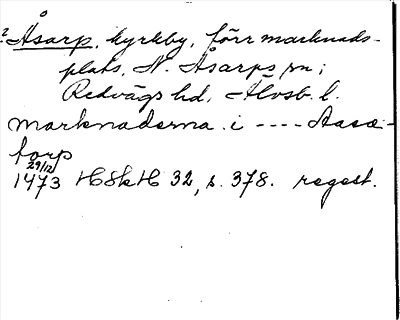 2 Åsarp, kyrkby, förr marknads-
plats, N. Åsarps sn;
Redvägs hd, Älvsb. l.
marknaderna i ---- Aasa-
torp
29/12
1473 HSkH 32, s. 378. regest.